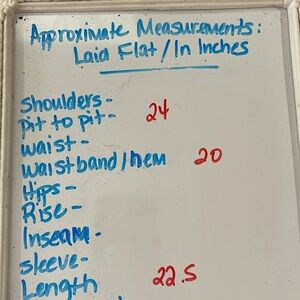 Approximate Measurements:
Laid Flat/In Inches
Shoulders-
Pit to pit- 24
Waist-
Waistband/Hem 20
Hips-
Rise-
Inseam-
Sleeve-
Length 22.5